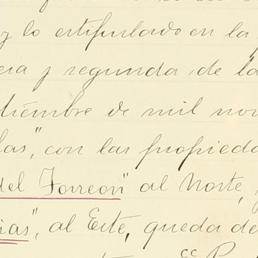 y lo estipulado en la
era y segunda de "la
tiembre de mil nov
las", con las propieda
del Torreon" al Norte,
ias", al Este, queda de